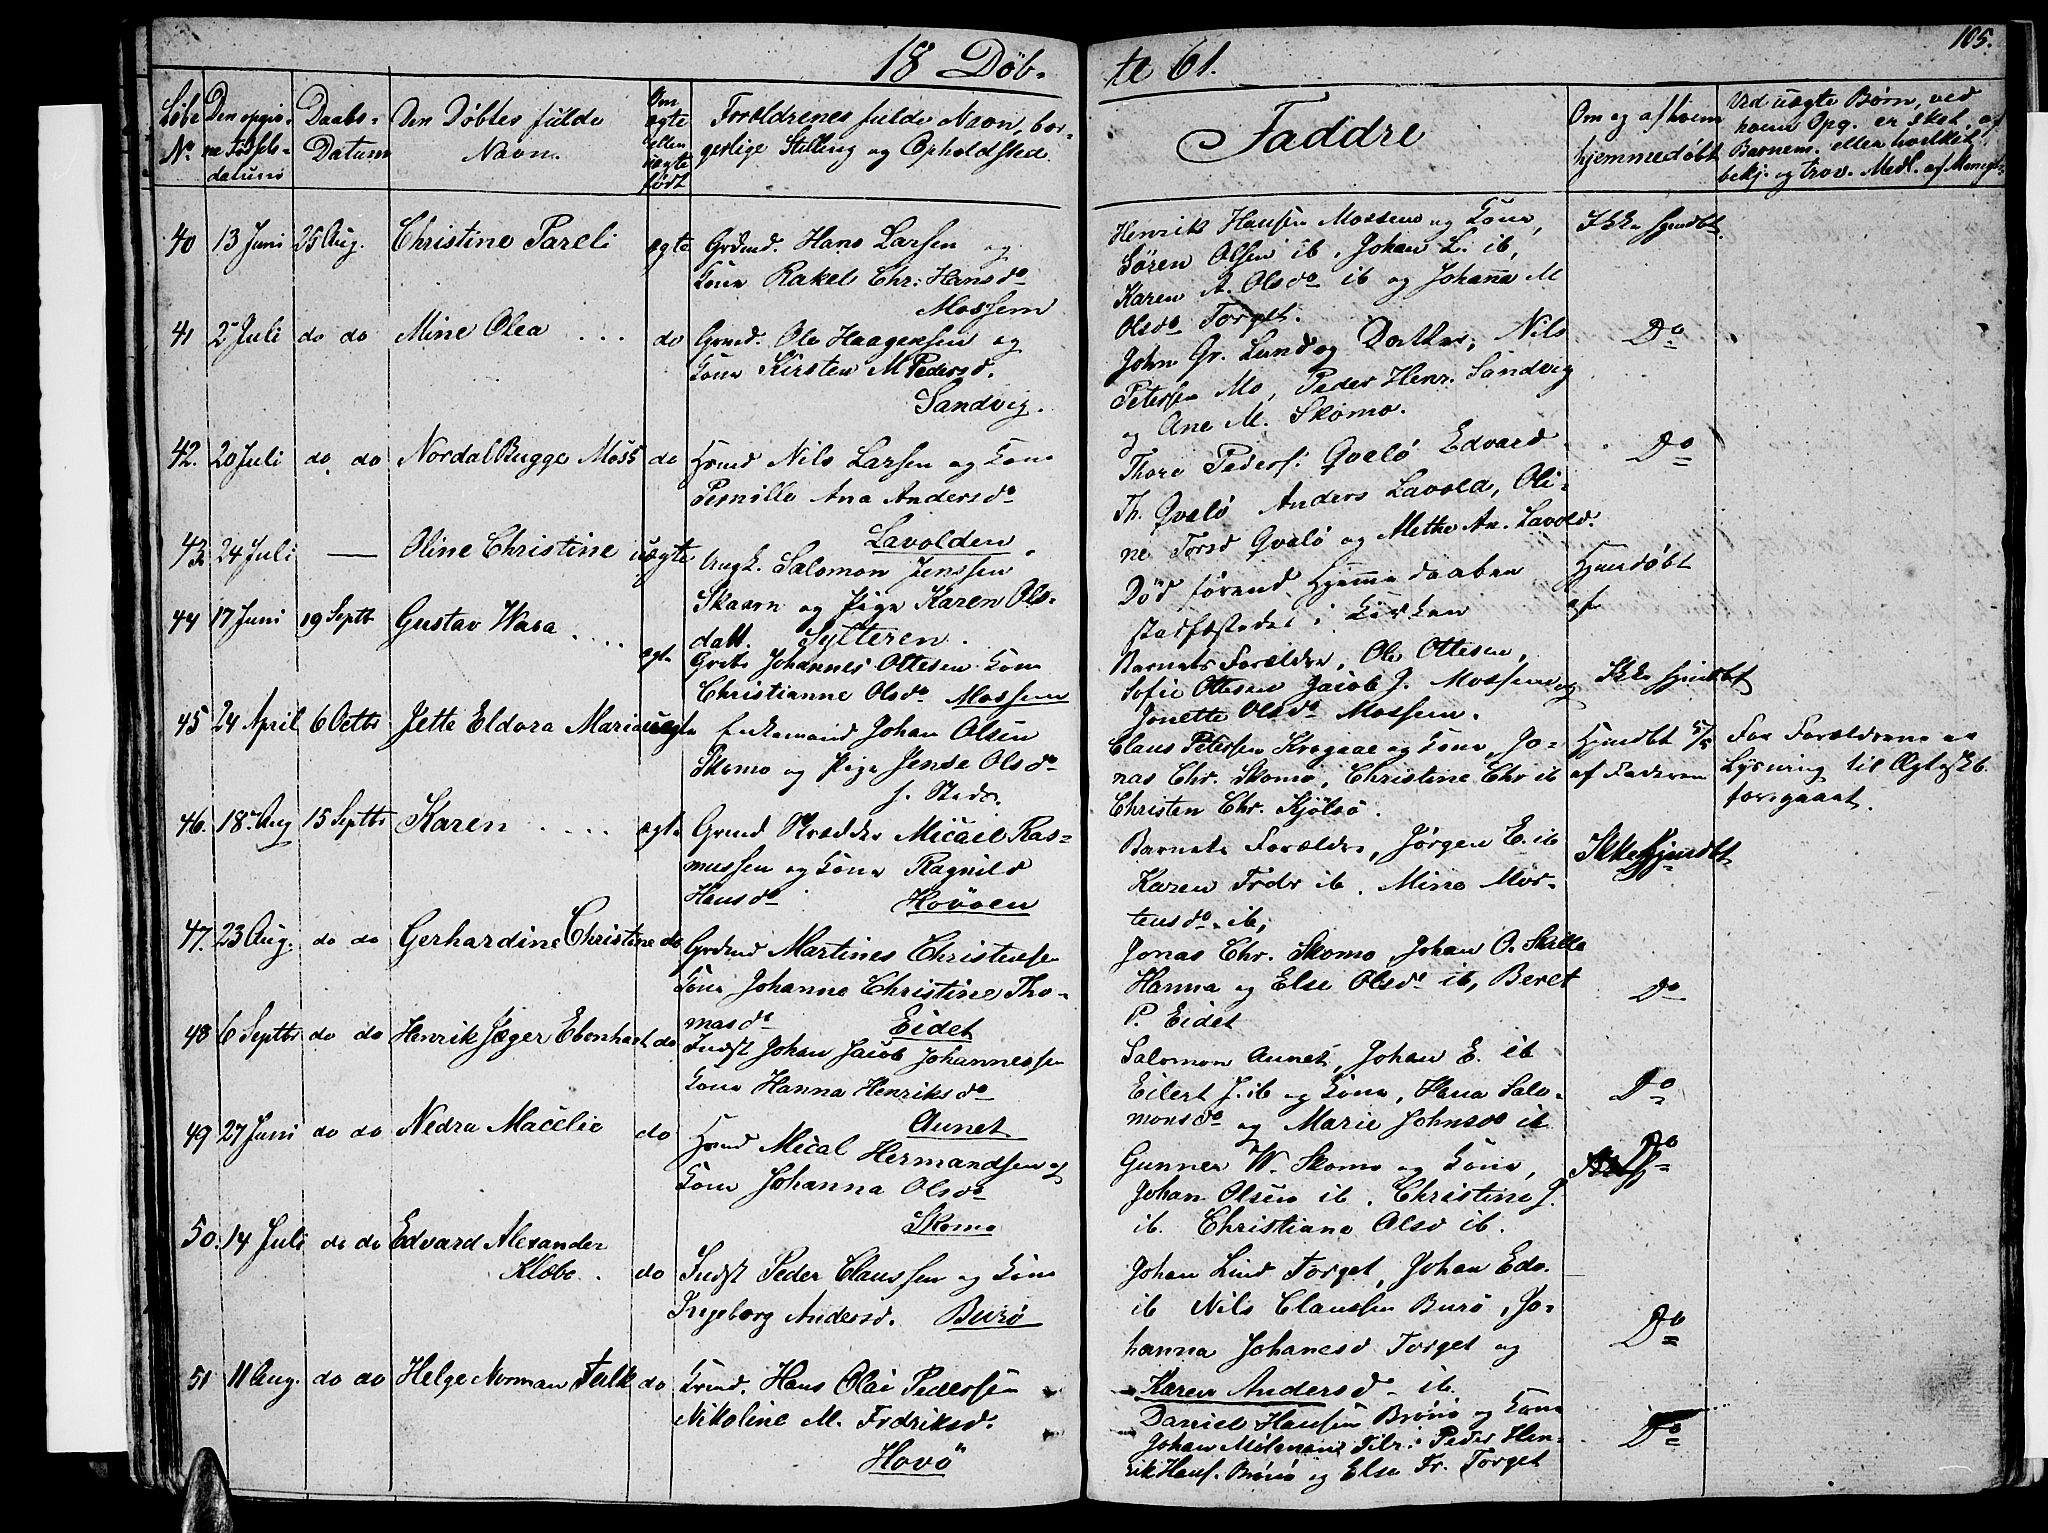 105.
18 Døb-
te 61.
Løbe
No.
Den opgiv-
ne Fødsels-
datum
Daabs-
Datum
Den Døbtes fulde
Navn.
Om
ægte
eller
uægte
født
Forældrenes fulde Navn, bor-
gerlige Stilling og Opholdsted
Faddre
Om og af hvem
hjemmedøbt
Ved uægte Børn, ved
hvem Opg. er sket, af
Barnem. eller hvilket
bekj. og trov. Medl. af Menigh.
40 13 Juni 25 Aug. Christine Pareli ægte
Grdmd. Hans Larsen og
Kone Rakel Chr. Hansdr
Mossem
Henrik Hansen Mossem og Kone,
Søren Olsen ib, Johan L. ib,
Karen A. Olsdr ib og Johanna M
Olsdr Torget.
Ikke hjmdbt.
41 2 Juli do do Mine Olea . . . do
Grmd. Ole Haagensen og
Kone Kirsten M Pedersd.
Sandvig.
John Gr. Lund og Datter, Nils
Petersen Mo, Peder Henr. Sandvig
og Ane M. Skomo.
Do
42. 20 Juli do do Nordal Bugge Moss do
Hsmd Nils Larsen og Kone
Pernille Ana Andersdr
Lavolden
Thore Peders. Qvalø Edvard
Th. Qvalø Anders Lavold, Oli-
ne Torsd Qvalø og Methe An. Lavold.
Do
43. 24 Juli — Oline Christine uægte
Ungk. Salomon Jenssen
Skaarn og Pige Karen Ols-
datt. Sylteren.
Død førend Hjemmedaaben
stadfæstedes i Kirken
Hjemdøbt
af
44 17 Juni 19 Septb Gustav Wasa . . . . ægte
Grdb Johannes Ottesen Kone
Christianne Olsdr Mossem
Barnets Forældre, Ole Ottesen,
Sofie Ottesen Jacob J. Mossem og
Jonette Olsdr Mossem.
Ikke hjmdbt
45 24 April 6 Octbr Jette Eldora Maria uægte
Enkemand Johan Olsen
Skomo og Pige Jense Olsdr
s. Steds.
Claus Petersen Krogaae og Kone, Jo-
nas Chr. Skomo, Christine Chr ib
Christen Chr. Kjølsø.
Hjmdbt 5/5
af Faderen
For Forældrene er
Lysning til Ægtesk.
foregaaet.
46. 18 Aug 15 Septbr Karen . . . . ægte
Grmd Skrædder Micael Ras-
mussen og Kone Ragnild
Hansdr Hovøen
Barnets Forældre, Jørgen E. ib
Karen Frdr ib, Mine Mor-
tensdr ib,
Ikke hjmdbt
47. 23 Aug. do do Gerhardine Christine do
Grdmd Martines Christensen
Kone Johanne Christine Tho-
masdr Eidet
Jonas Chr. Skomo, Johan O. Skille
Hanna og Else Olsdr ib, Beret
P. Eidet
Do
48 6 Septbr do do Henrik Jæger Ebenhart do
Indst Johan Jacob Johannessen
Kone Hanna Henriksdr
Aunet
Salomon Aunet, Johan E. ib
Eilert J. ib og Kone, Hana Salo-
monsdr og Marie Johnsdr ib
Do
49 27 Juni do do Nedra Macelie do
Hsmd Mical Hermandsen og
Kone Johanna Olsdr
Skomo
Gunner W. Skomo og Kone,
Johan Olsen ib, Christine J.
ib. Christiane Olsd ib.
Do
50. 14 Juli do do Edvard Alexander
Klæbo . do
Indst Peder Claussen og Kone
Ingeborg Andersd. Burø
Johan Lind Torget, Johan Eds.
ib Nils Claussen Burø, Jo-
hanna Johanesd Torget og
Karen Andersd ib.
Do
51 11 Aug. do do Helge Norman Falk do
Grmd. Hans Olai Pederssen
Nikoline M. Fredriksd.
Hovø
Daniel Hansen Brønø og Kone
Johan Tilr. Peder Hen-
rik Hans. Brønø og Else Fr. Torget
Do